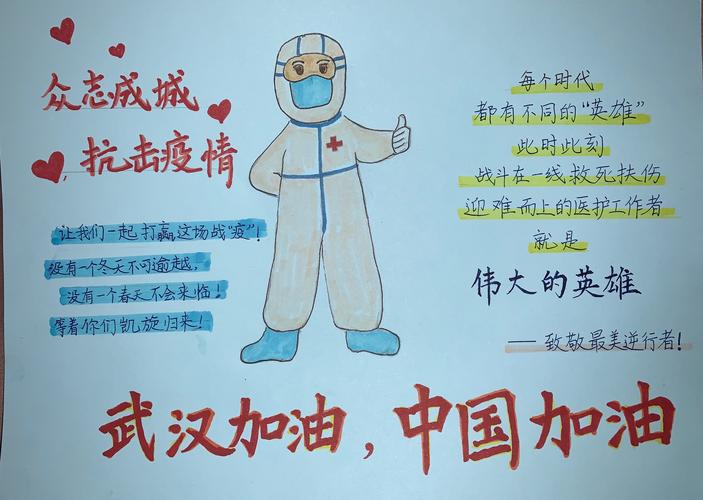 众志成城
抗击疫情
让我们一起打赢这场战“疫”!
没有一个冬天不可逾越,
没有一个春天不会来临!
等着你们凯旋归来!
每个时代
都有不同的“英雄”
此时此刻
战斗在一线救死扶伤
迎难而上的医护工作者
就是
伟大的英雄
——致敬最美逆行者!
武汉加油,中国加油